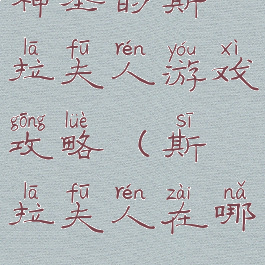 神圣的斯
lā fū rén yóu xì
拉夫人游戏
gōng lüè sī
攻略（斯
lā fū rén zài nǎ
拉夫人在哪